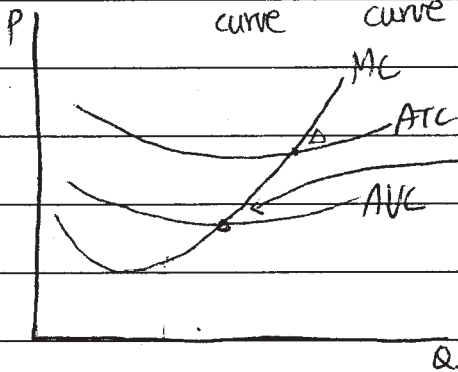 P curve curve
MC
ATC
AVC
Q